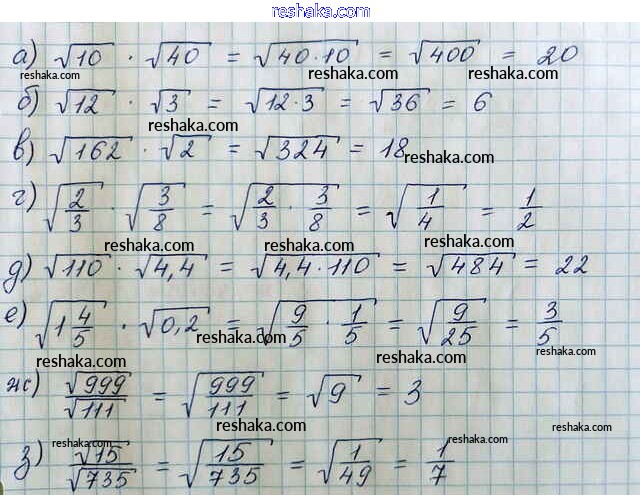 reshaka.com
а) √10 · √40 = √40·10 = √400 = 20
reshaka.com reshaka.com reshaka.com
б) √12 · √3 = √12·3 = √36 = 6
reshaka.com
в) √162 · √2 = √324 = 18
reshaka.com
г) √2/3 · √3/8 = √2/3 · 3/8 = √1/4 = 1/2
reshaka.com reshaka.com reshaka.com
д) √110 · √4,4 = √4,4·110 = √484 = 22
reshaka.com
е) √1 4/5 · √0,2 = √9/5 · 1/5 = √9/25 = 3/5
reshaka.com reshaka.com reshaka.com
ж) √999/√111 = √999/111 = √9 = 3
reshaka.com
reshaka.com reshaka.com reshaka.com
з) √15/√735 = √15/735 = √1/49 = 1/7
reshaka.com